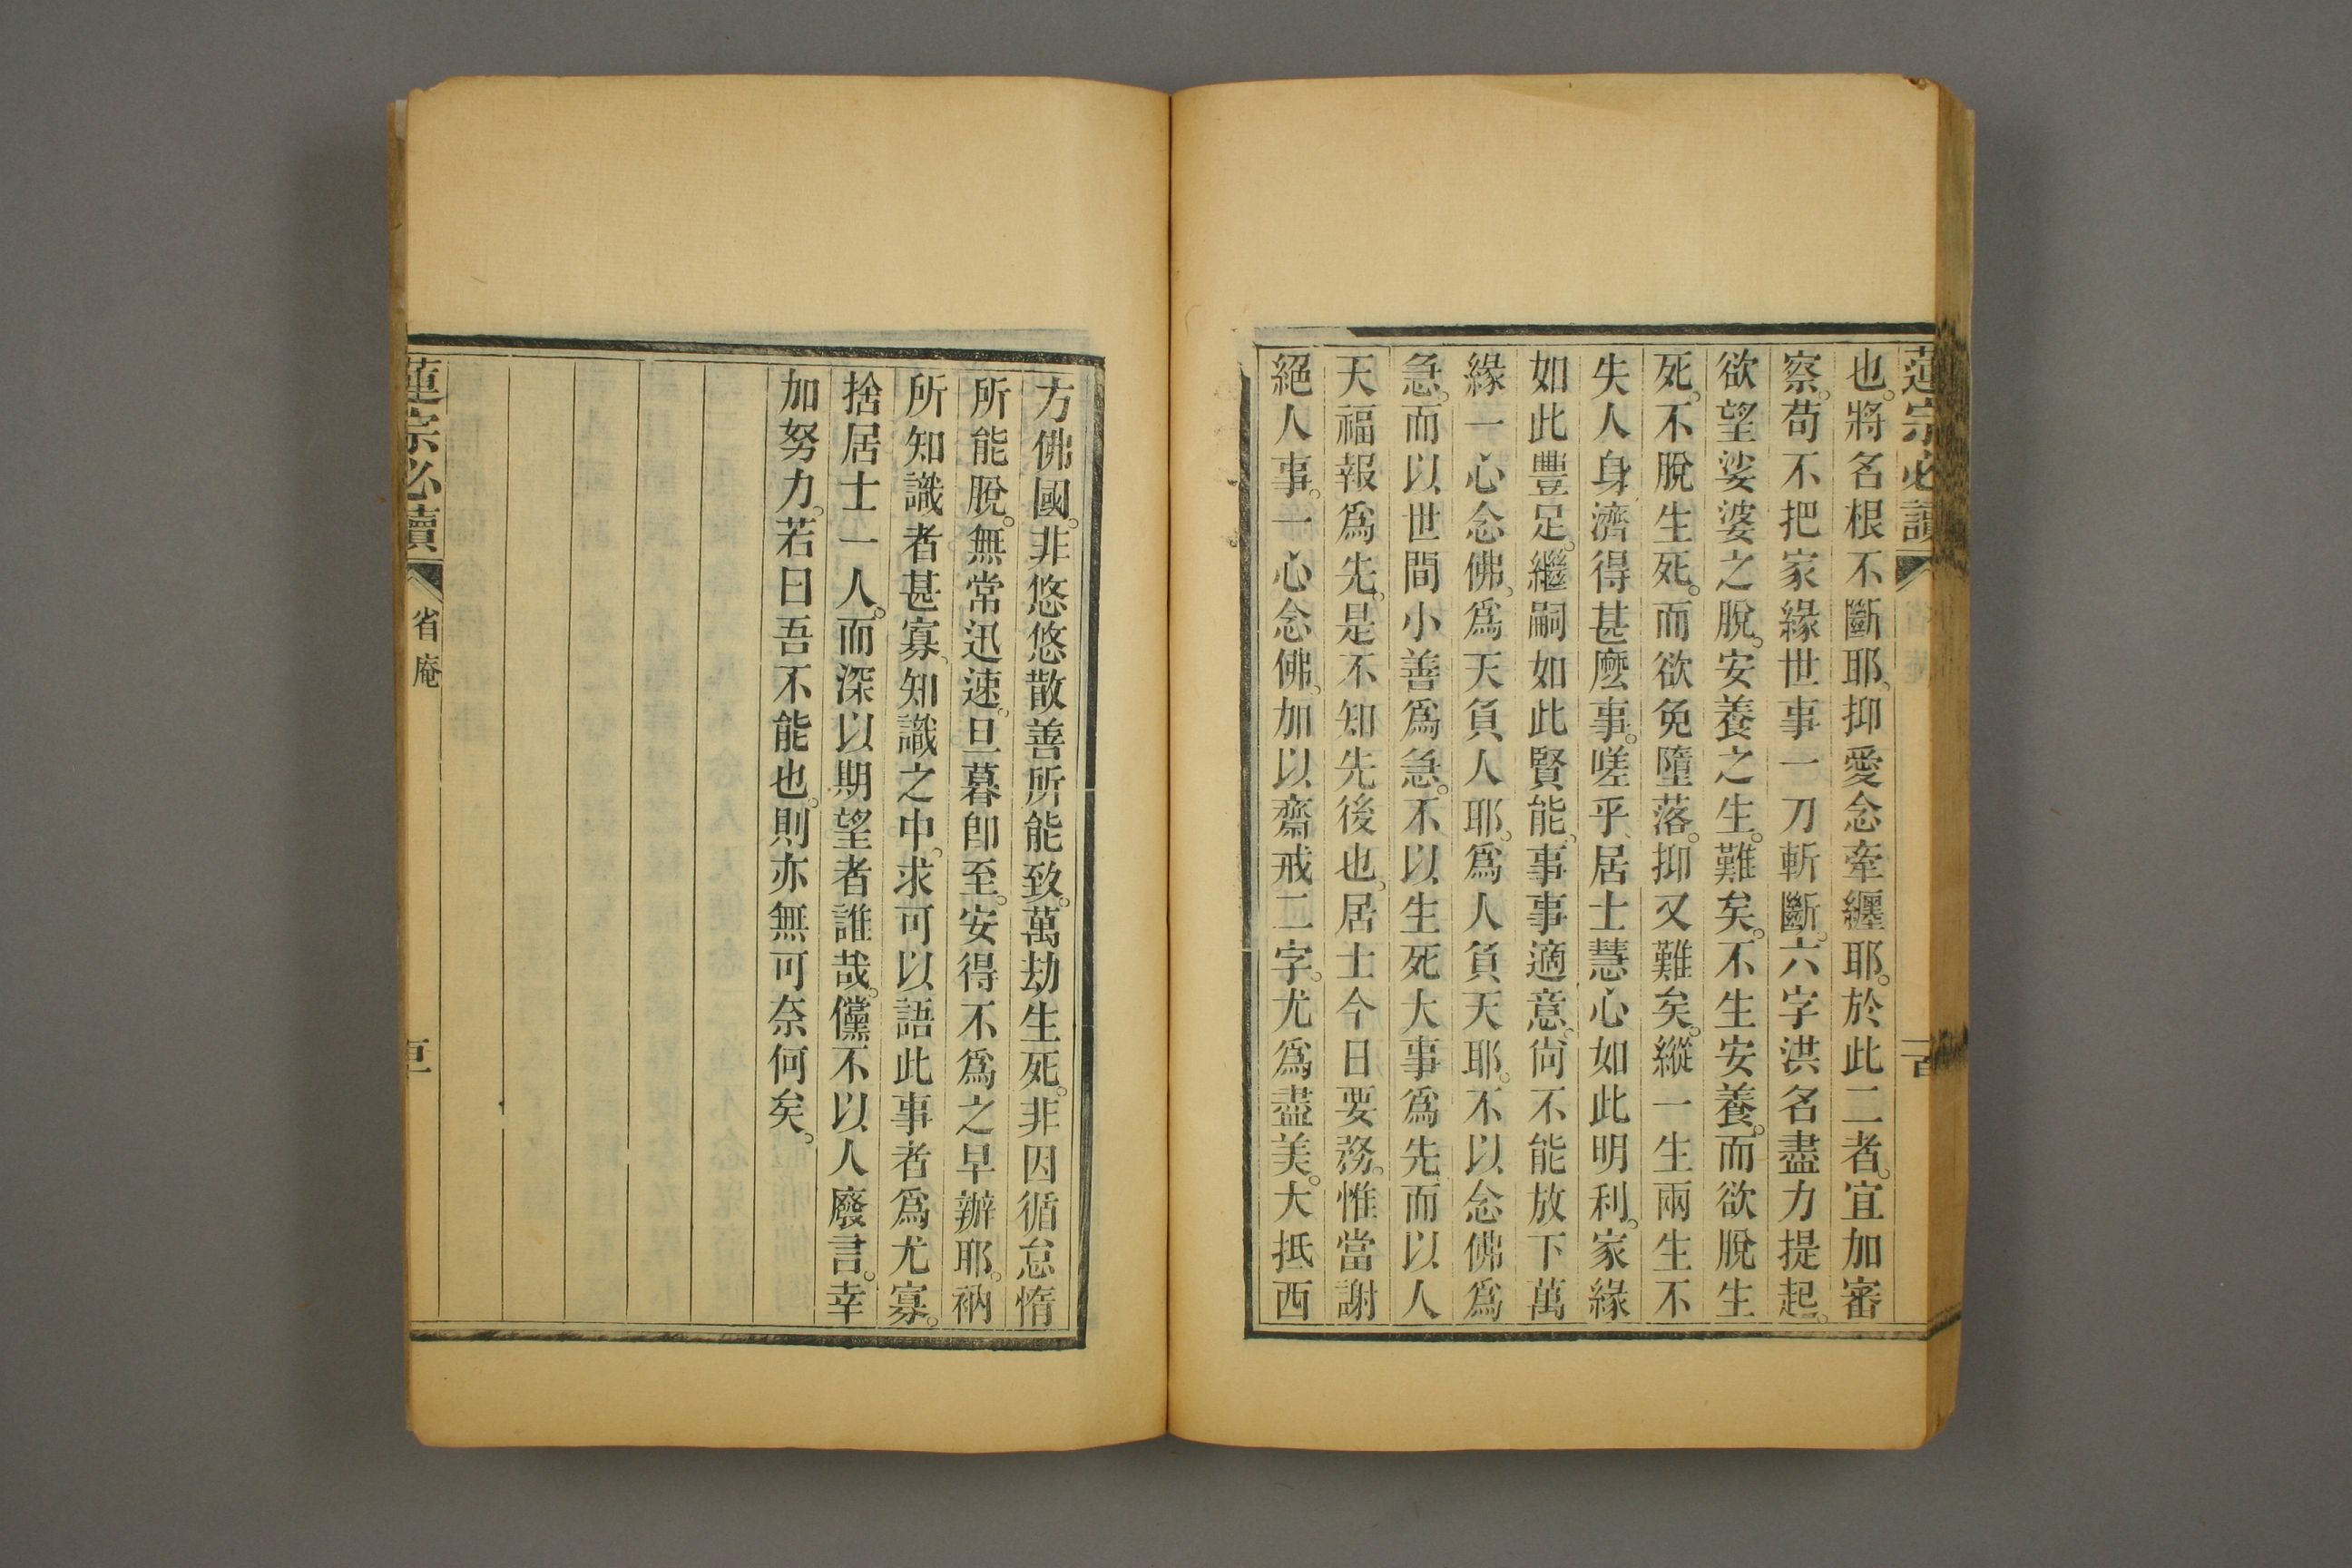 蓮宗必讀
也。將名根不斷耶。抑愛念牽纏耶。於此二者。宜加審
察。苟不把家緣世事一刀斬斷。六字洪名盡力提起。
欲望娑婆之脫。安養之生。難矣。不生安養。而欲脫生
死。不脫生死。而欲免墮落。抑又難矣。縱一生兩生不
失人身濟得甚麽事。嗟乎居士慧心如此明利。家緣
如此豐足。繼嗣如此賢能。事事適意。尙不能放下萬
緣一心念佛。爲天負人耶。爲人負天耶。不以念佛爲
急。而以世間小善爲急。不以生死大事爲先。而以人
天福報爲先。是不知先後也。居士今日要務。惟當謝
絕人事。一心念佛。加以齋戒二字。尤爲盡美。大抵西
方佛國。非悠悠散善所能致。萬劫生死。非因循怠惰
所能脫。無常迅速。旦暮卽至。安得不爲之早辦耶。衲
所知識者甚寡。知識之中。求可以語此事者爲尤寡。
捨居士一人。而深以期望者誰哉。儻不以人廢言。幸
加努力。若曰吾不能也。則亦無可奈何矣。
蓮宗必讀
省庵